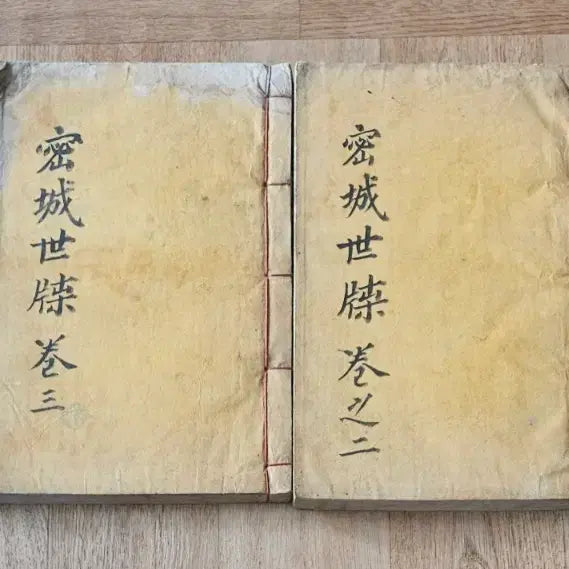 密城世牒 卷之二
密城世牒 卷三